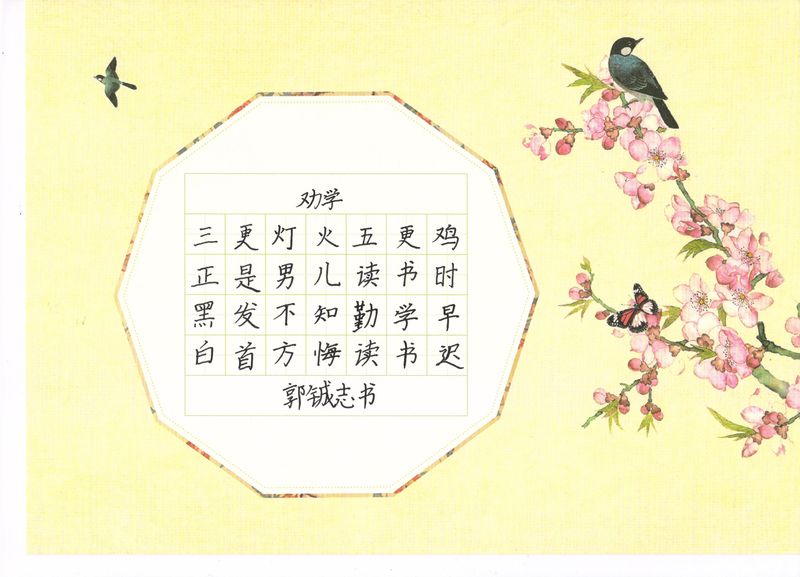 劝学
三更灯火五更鸡
正是男儿读书时
黑发不知勤学早
白首方悔读书迟
郭铖志书